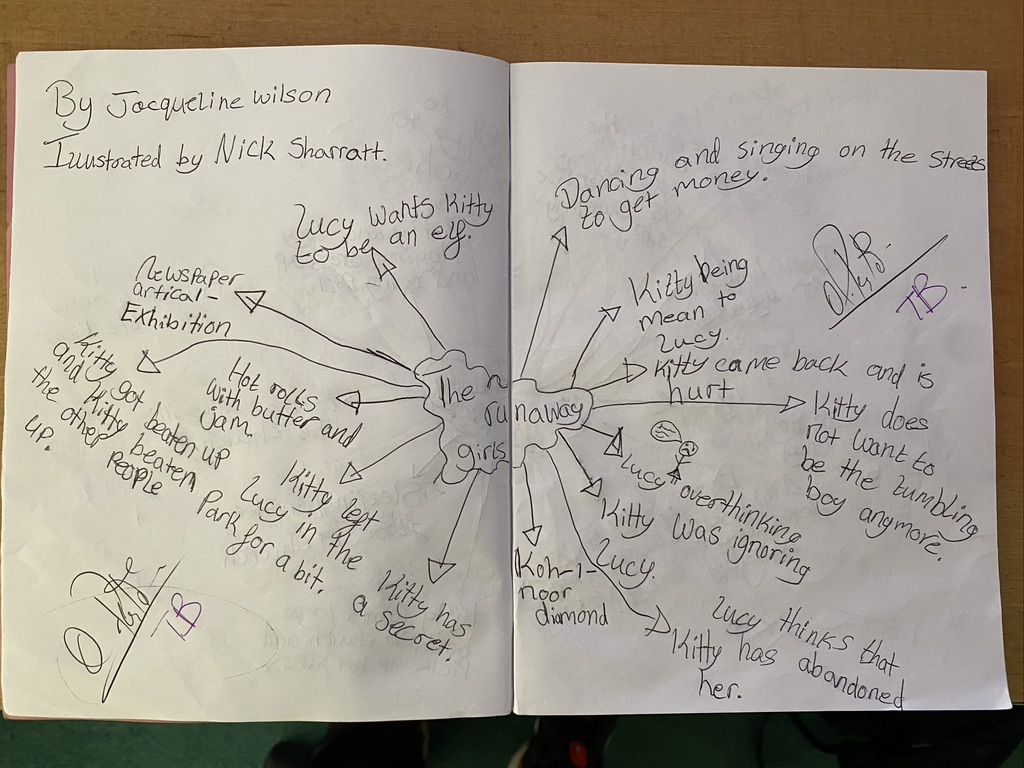 By Jacqueline Wilson
Illustrated by Nick Sharratt.
Lucy wants Kitty
to be an elf.
Newspaper
artical -
Exhibition
Kitty got beaten up
and Kitty beaten
the other people
up.
Hot rolls
with butter and
jam.
Kitty left
Lucy in the
Park for a bit.
Kitty has
a secret.
TB
The runaway
girls
Dancing and singing on the streets
to get money.
Kitty being
mean to
Lucy.
Kitty came back and is
hurt
Kitty does
not want to
be the tumbling
boy anymore.
Lucy overthinking
Kitty was ignoring
Lucy.
Koh-i-
noor
diamond
Lucy thinks that
Kitty has abandoned
her.
TB.